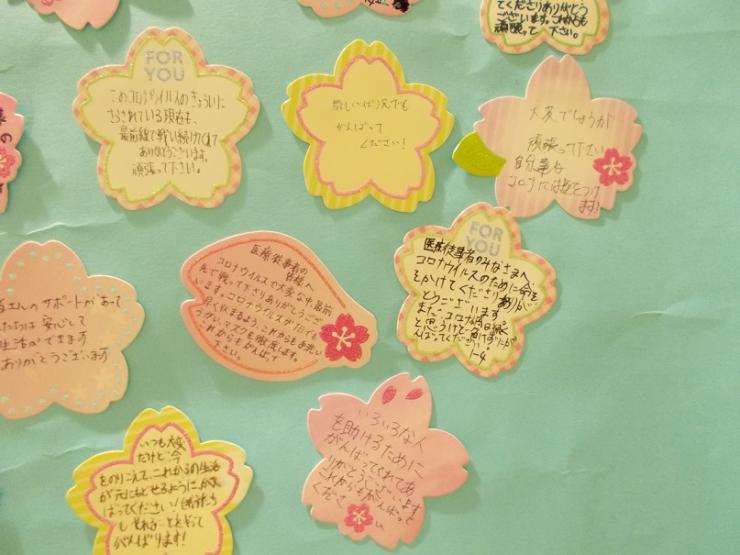 てくださりありがとう
ございます。これからも
頑張って下さい。
FOR
YOU
このコロナウイルスのきょういに
さらされている現在も、
最前線で戦い続けてくれて
ありがとうございます。
頑張って下さい。
厳しい状況でも
がんばって
ください!
大変でしょうが
頑張って下さい
自分達も
コロナには気をつけ
ます!
医療従事者の
皆様へ
コロナウイルスで大変な中、最前
先で戦って下さりありがとうござ
います。コロナウイルスが1日でも
早く収まるよう、これからも手洗い
うがい、マスクを徹底します。
これからもがんばって
下さい。
FOR
YOU
医療従事者のみなさまへ
コロナウイルスのために命を
かけてくださりありが
とうございます
まだコロナ
と思うけど負けずにが
んばってください!
1-4
さんのサポートがあって
たちは安心して
生活ができます
ありがとうございます
いつも大変
だけど今
をのりこえて、これからの生活
が元にもどせるように、がん
ばってください!自分たち
も それぞれ
がんばります!
いろいろな人
を助けるために
がんばってくれてあ
りがとうございます
これからもがんばって
くださ
い